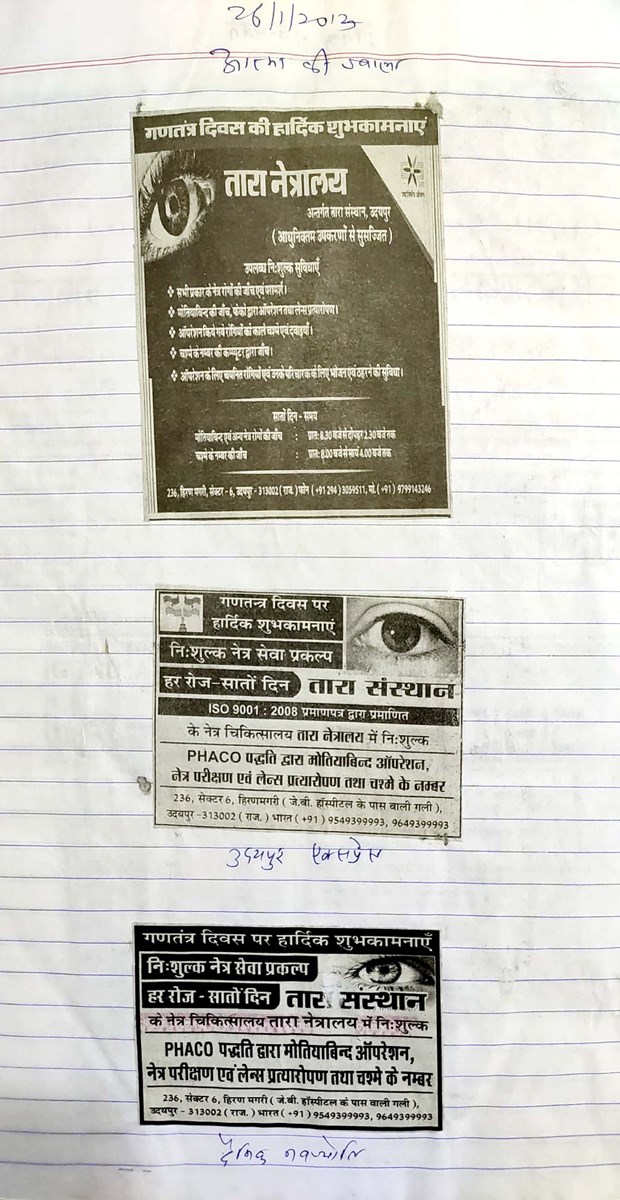 26/1/2013
आत्मा की ज्वाला
गणतंत्र दिवस की हार्दिक शुभकामनाएं
तारा नेत्रालय
अन्तर्गत तारा संस्थान, उदयपुर
( आधुनिकतम उपकरणों से सुसज्जित )
उपलब्ध निःशुल्क सुविधाएँ
❖ सभी प्रकार के नेत्र रोगों की जाँच एवं परामर्श।
❖ मोतियाबिन्द की जाँच, फेको द्वारा ऑपरेशन तथा लेन्स प्रत्यारोपण।
❖ ऑपरेशन किये गये रोगियों को काले चश्मे एवं दवाइयाँ।
❖ चश्मे के नम्बर की कम्प्यूटर द्वारा जाँच।
❖ ऑपरेशन के लिए चयनित रोगियों एवं उनके परिचारक के लिए भोजन एवं ठहरने की सुविधा।
सातों दिन - समय
मोतियाबिन्द एवं अन्य नेत्र रोगों की जाँच : प्रातः 8.30 बजे से दोपहर 2.30 बजे तक
चश्मे के नम्बर की जाँच : प्रातः 8.00 बजे से सायं 4.00 बजे तक
236, हिरण मगरी, सेक्टर - 6, उदयपुर - 313002 ( राज. ) फोन ( +91 294 ) 3059511, मो. ( +91 ) 9799143246
गणतन्त्र दिवस पर
हार्दिक शुभकामनाएं
निःशुल्क नेत्र सेवा प्रकल्प
हर रोज-सातों दिन तारा संस्थान
ISO 9001 : 2008 प्रमाणपत्र द्वारा प्रमाणित
के नेत्र चिकित्सालय तारा नेत्रालय में निःशुल्क
PHACO पद्धति द्वारा मोतियाबिन्द ऑपरेशन,
नेत्र परीक्षण एवं लेन्स प्रत्यारोपण तथा चश्मे के नम्बर
236, सेक्टर 6, हिरणमगरी ( जे.बी. हॉस्पीटल के पास वाली गली ),
उदयपुर -313002 ( राज. ) भारत ( +91 ) 9549399993, 9649399993
उदयपुर एक्सप्रेस
गणतंत्र दिवस पर हार्दिक शुभकामनाएँ
निःशुल्क नेत्र सेवा प्रकल्प
हर रोज - सातों दिन तारा संस्थान
के नेत्र चिकित्सालय तारा नेत्रालय में निःशुल्क
PHACO पद्धति द्वारा मोतियाबिन्द ऑपरेशन,
नेत्र परीक्षण एवं लेन्स प्रत्यारोपण तथा चश्मे के नम्बर
236, सेक्टर 6, हिरण मगरी ( जे.बी. हॉस्पीटल के पास वाली गली ),
उदयपुर - 313002 ( राज. ) भारत ( +91 ) 9549399993, 9649399993
दैनिक नवज्योति